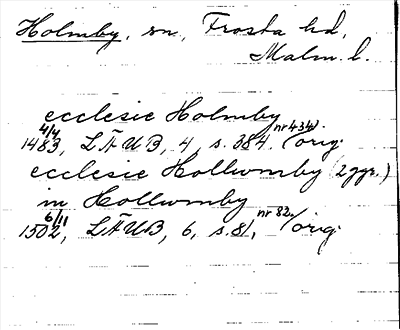 Holmby, sn, Frosta hd,
Malm. l.
ecclesie Holmby
1483 4/4, LÄUB, 4, s. 384. nr 434). /orig.
ecclesie Hollwmby (2 ggr.)
in Hollwmby
1502 6/11, LÄUB, 6, s. 81, nr 82. /orig.